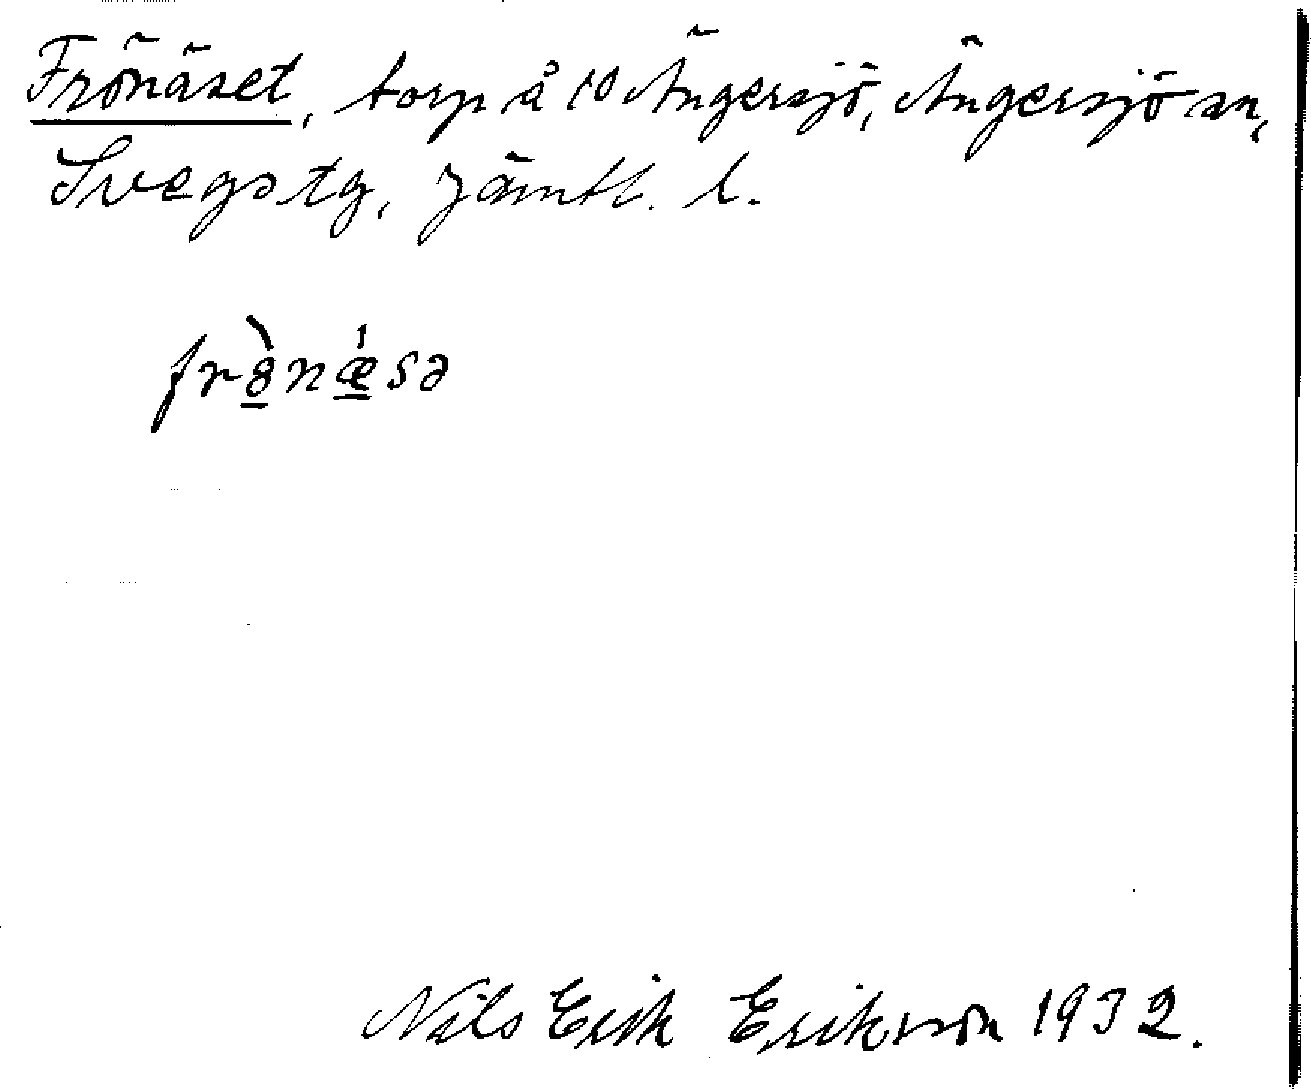 Frönäset, torp å 10 Ängersjö, Ängersjö sn,
Svegs tg, Jämtl. l.
fr8̲̀nǽ̲sə
Nils Erik Erikson 1932.